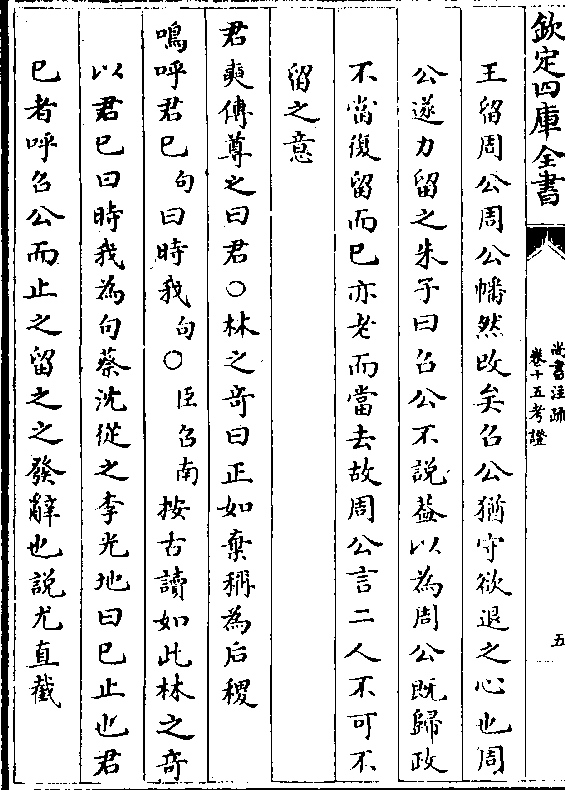 欽定四庫全書
尚書注疏
卷十五考證
五
王留周公周公幡然改矣召公猶守欲退之心也周
公遂力留之朱子曰召公不說葢以為周公既歸政
不當復留而已亦老而當去故周公言二人不可不
留之意
君奭傳尊之曰君○林之竒曰正如棄稱為后稷
嗚呼君已句曰時我句○臣召南按古讀如此林之竒
以君已曰時我為句蔡沈從之李光地曰已止也君
已者呼召公而止之留之之發辭也說尤直截